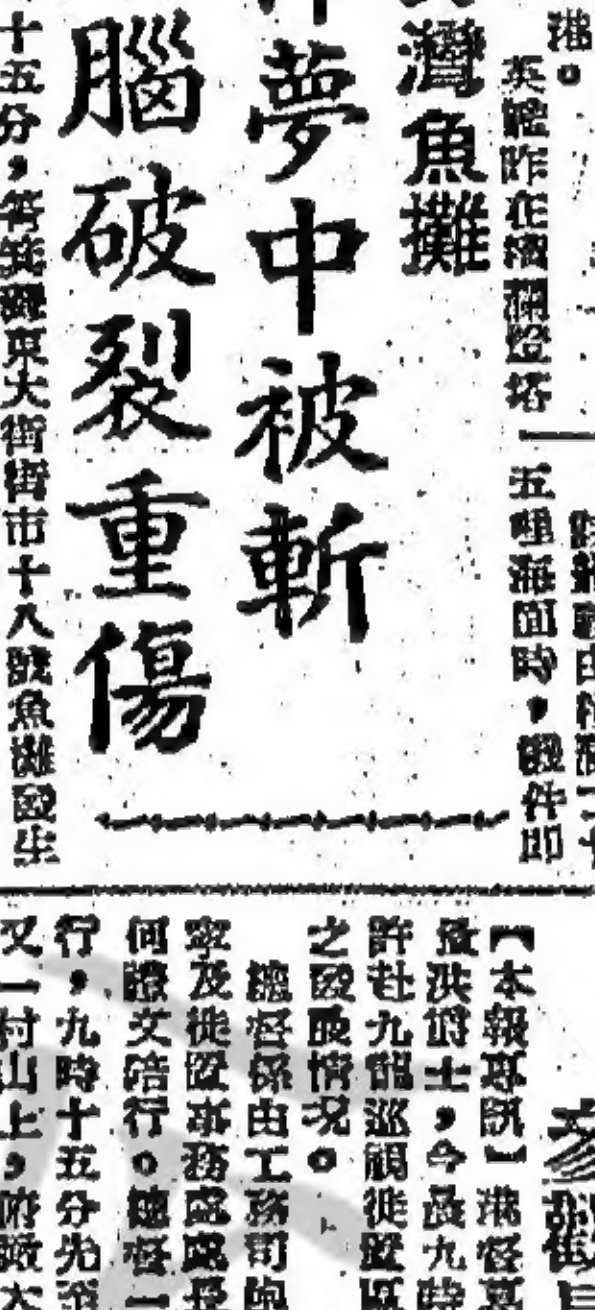 港。
英艦昨在橫瀾燈塔
五哩海面時，
灣魚攤
夢中被斬
腦破裂重傷
十五分，筲箕灣東大街街市十八號魚攤發生
【本報專訊】港督葛
量洪爵士，今晨九時
許赴九龍巡視徙置區
之發展情况。
總督係由工務司鮑
寧及徙置事務處處長
何禮文陪行。總督一
行，九時十五分先至
又一村山上，俯瞰大